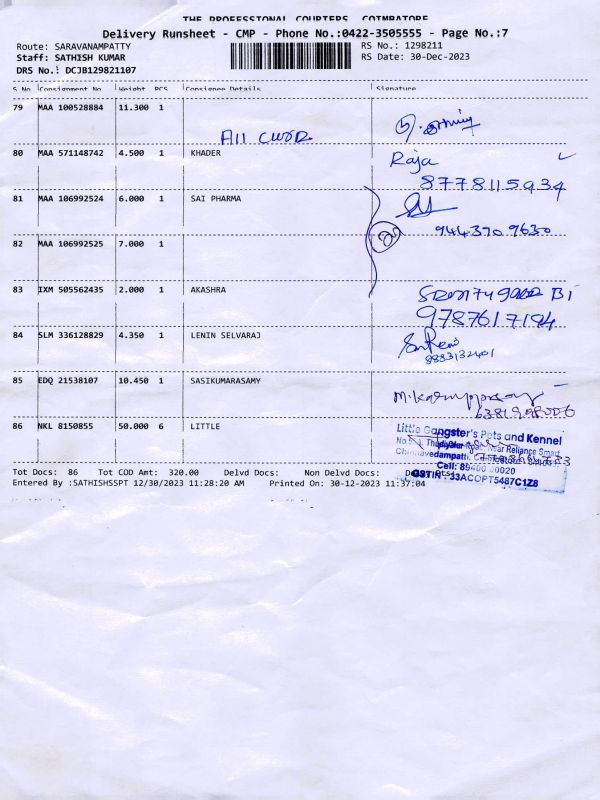 THE PROFESSIONAL COURIERS, COIMBATORE
Delivery Runsheet - CMP - Phone No.:0422-3505555 - Page No.:7
Route: SARAVANAMPATTY RS No.: 1298211
Staff: SATHISH KUMAR RS Date: 30-Dec-2023
DRS No.: DCJB129821107
S No Consignment No Weight PCS Consignee Details Signature
79 MAA 100528884 11.300 1
80 MAA 571148742 4.500 1 KHADER Raja
8778115934
81 MAA 106992524 6.000 1 SAI PHARMA
944370 9630
82 MAA 106992525 7.000 1
83 IXM 505562435 2.000 1 AKASHRA
9787617194
84 SLM 336128829 4.350 1 LENIN SELVARAJ
8883132401
85 EDQ 21538107 10.450 1 SASIKUMARASAMY
86 NKL 8150855 50.000 6 LITTLE
Little Gangster's Pets and Kennel
Near Reliance Smart
Chinnavedampatti,
Cell: 89400 00020
GSTIN : 33ACOPT5487C1Z8
Tot Docs: 86 Tot COD Amt: 320.00 Delvd Docs: Non Delvd Docs:
Entered By :SATHISHSSPT 12/30/2023 11:28:20 AM Printed On: 30-12-2023 11:37:04